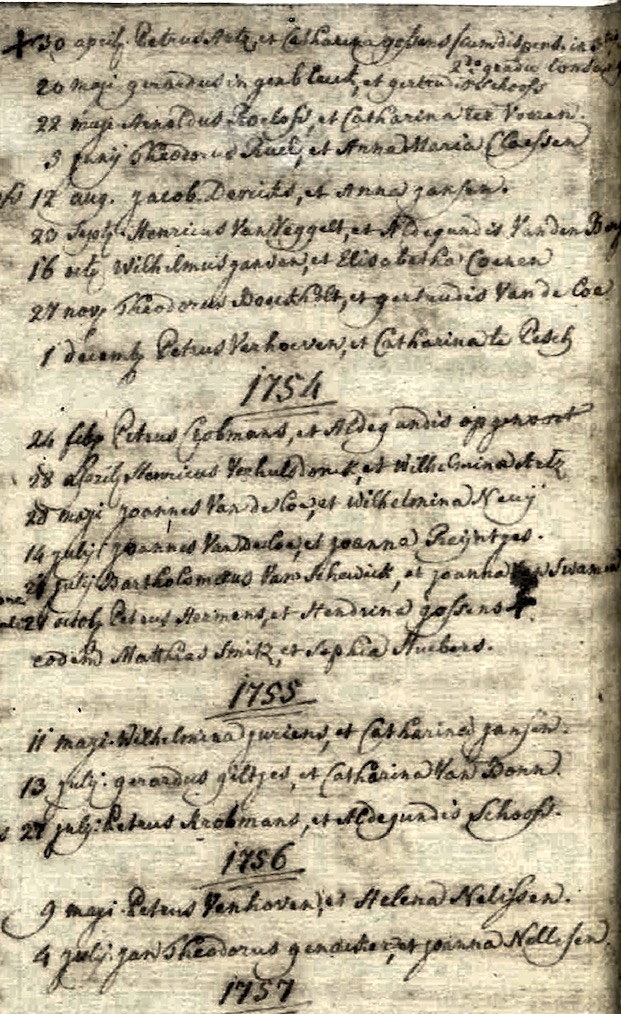 30 april. Petrus Artz, et Catharina gossens cum dispens. in
2do gradu
20 maji gerardus in gen bleek, et gertrudis Schoofs
22 maji Arnoldus Roelofs, et Catharina ter Voeren.
3 junij Theodorus Ruel, et Anna Maria Claessen
12 aug. jacob Dericks, et Anna jansen.
23 Henricus Van Veggelt, et Aldegundis Vanden
16 octb Wilhelmus jansen, et Elisabetha Coenen
27 nov Theodorus Boeckholt, et gertrudis Van de Loe
1 decemb Petrus Verhoeven, et Catharina te Pesch
1754
24 feb Petrus et Aldegundis opgenoort
28 april Henricus Verhulsdonck, et Wilhelmina Artz
28 maji joannes Van de Loe, et Wilhelmina Nevij
14 julij joannes Van de Loe, et joanna Reijntges.
julij Bartholomeus Van Schewick, et joanna
octob Petrus Hermens, et Hendrina gossens
eodem Matthias Smitz, et Sophia Huebers.
1755
11 maji Wilhelmina juriens, et Catharina jansen.
13 julij. gerardus giltjes, et Catharina Van Bonn.
27 julij. Petrus Krobmans, et Aldegundis Schoofs.
1756
9 maji Petrus Venhoven, et Helena Nelissen.
4 julij jan Theodorus et joanna Nellesen.
1757